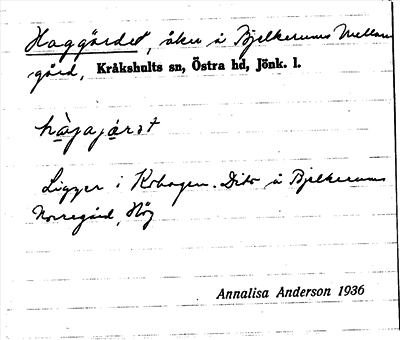 Haggärdet, åker å Bjelkerums Mellan
gård, Kråkshults sn, Östra hd, Jönk. l.
hàgajáɹət
Ligger i Kohagen. Dito å Bjelkerums
Norregård, Hög
Annalisa Anderson 1936